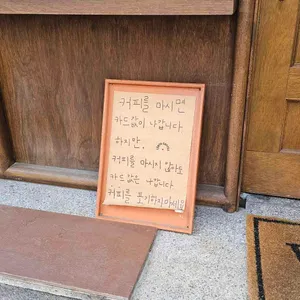 커피를 마시면
카드값이 나갑니다
하지만,
커피를 마시지 않아도
카드값은 나갑니다
커피를 포기하지마세요